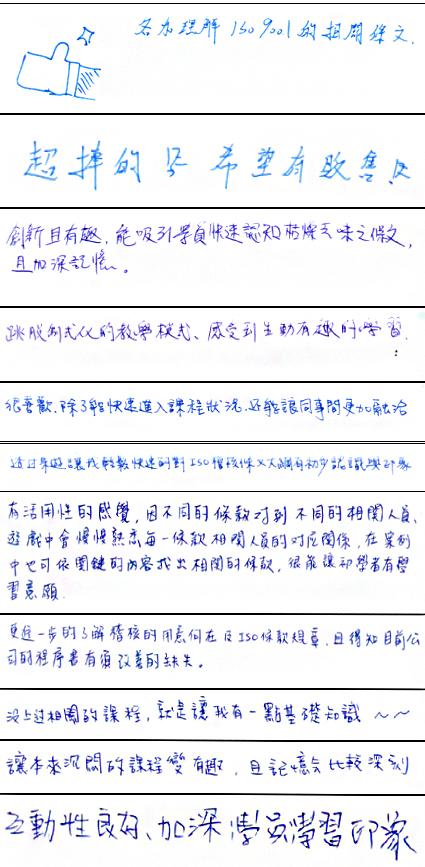 各為理解 ISO 9001 的相關條文.
超棒的!! 希望有販售!!
創新且有趣,能吸引學員快速認知枯燥乏味之條文,
且加深記憶。
跳脫制式化的教學模式、感受到生動有趣的學習.
很喜歡.除了能快速進入課程狀況.還能讓同事間更加融洽
透過桌遊讓我輕鬆快速的對 ISO稽核條文大綱有初步認識與印象
有活用性的感覺,因不同的條款對到不同的相關人員、
遊戲中會慢慢熟悉每一條款相關人員的對應關係,在案例
中也可依關鍵的內容找出相關的條款,很能讓初學者有學
習意願.
更進一步的了解稽核的用意何在及ISO條款規章,且得知目前公
司的程序書有須改善的缺失。
沒上過相關的課程,就是讓我有一點基礎知識 ~~
讓本來沉悶的課程變有趣,且記憶會比較深刻
互動性良好、加深學員學習印象